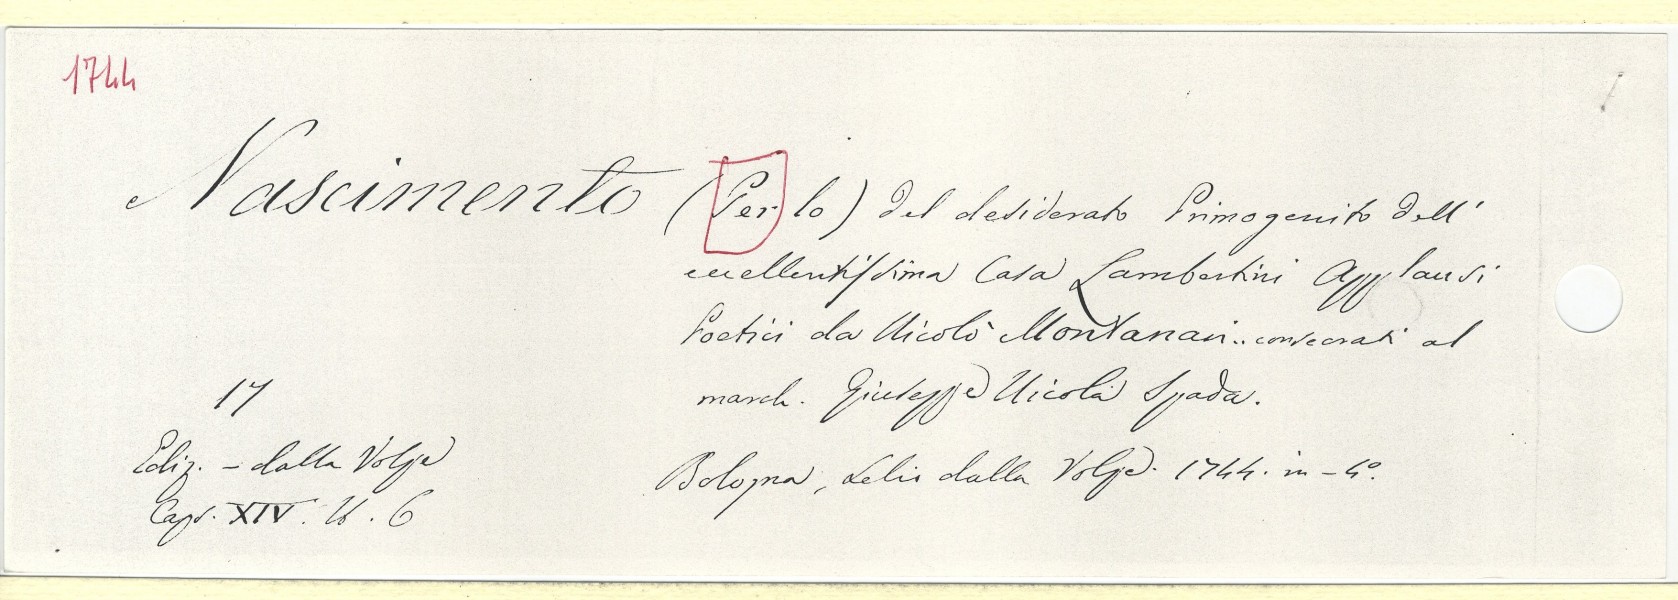 1744
Nascimento (Per lo) del desiderato Primogenito dell'
eccellentissima Casa Lambertini Applausi
Poetici da Nicolò Montanari.. consecrati al
march. Giuseppe Nicola Spada.
17
Ediz. - dalla Volpe
Bologna, Lelio dalla Volpe. 1744. in - 4°.
Caps. XIV. N. 6